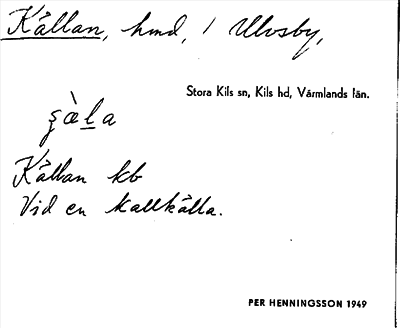 Källan, hmd, / Ulvsby,
Stora Kils sn, Kils hd, Värmlands län.
Källan kb
Vid en kallkälla.
PER HENNINGSSON 1949